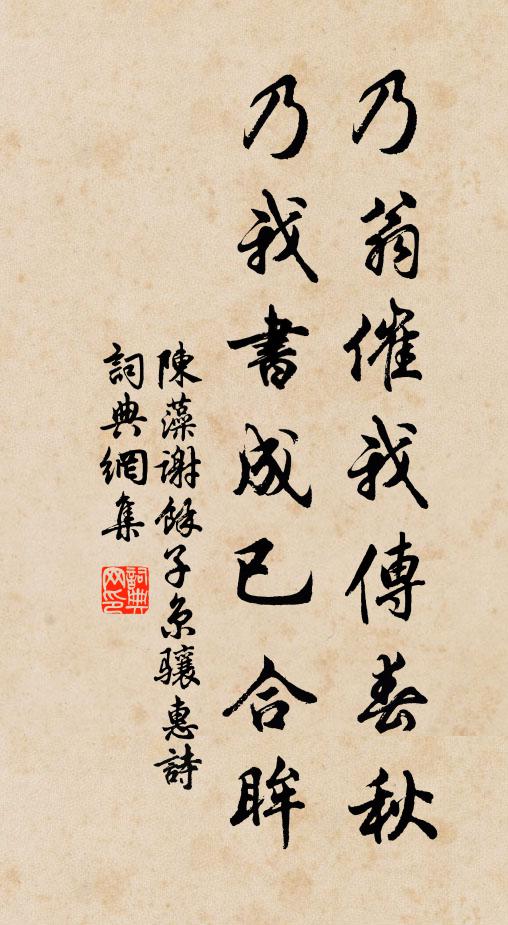 乃翁催我傳春秋
乃我書成已合眸
陳藻謝餘子京驤惠詩
詞典網集
詞典網印